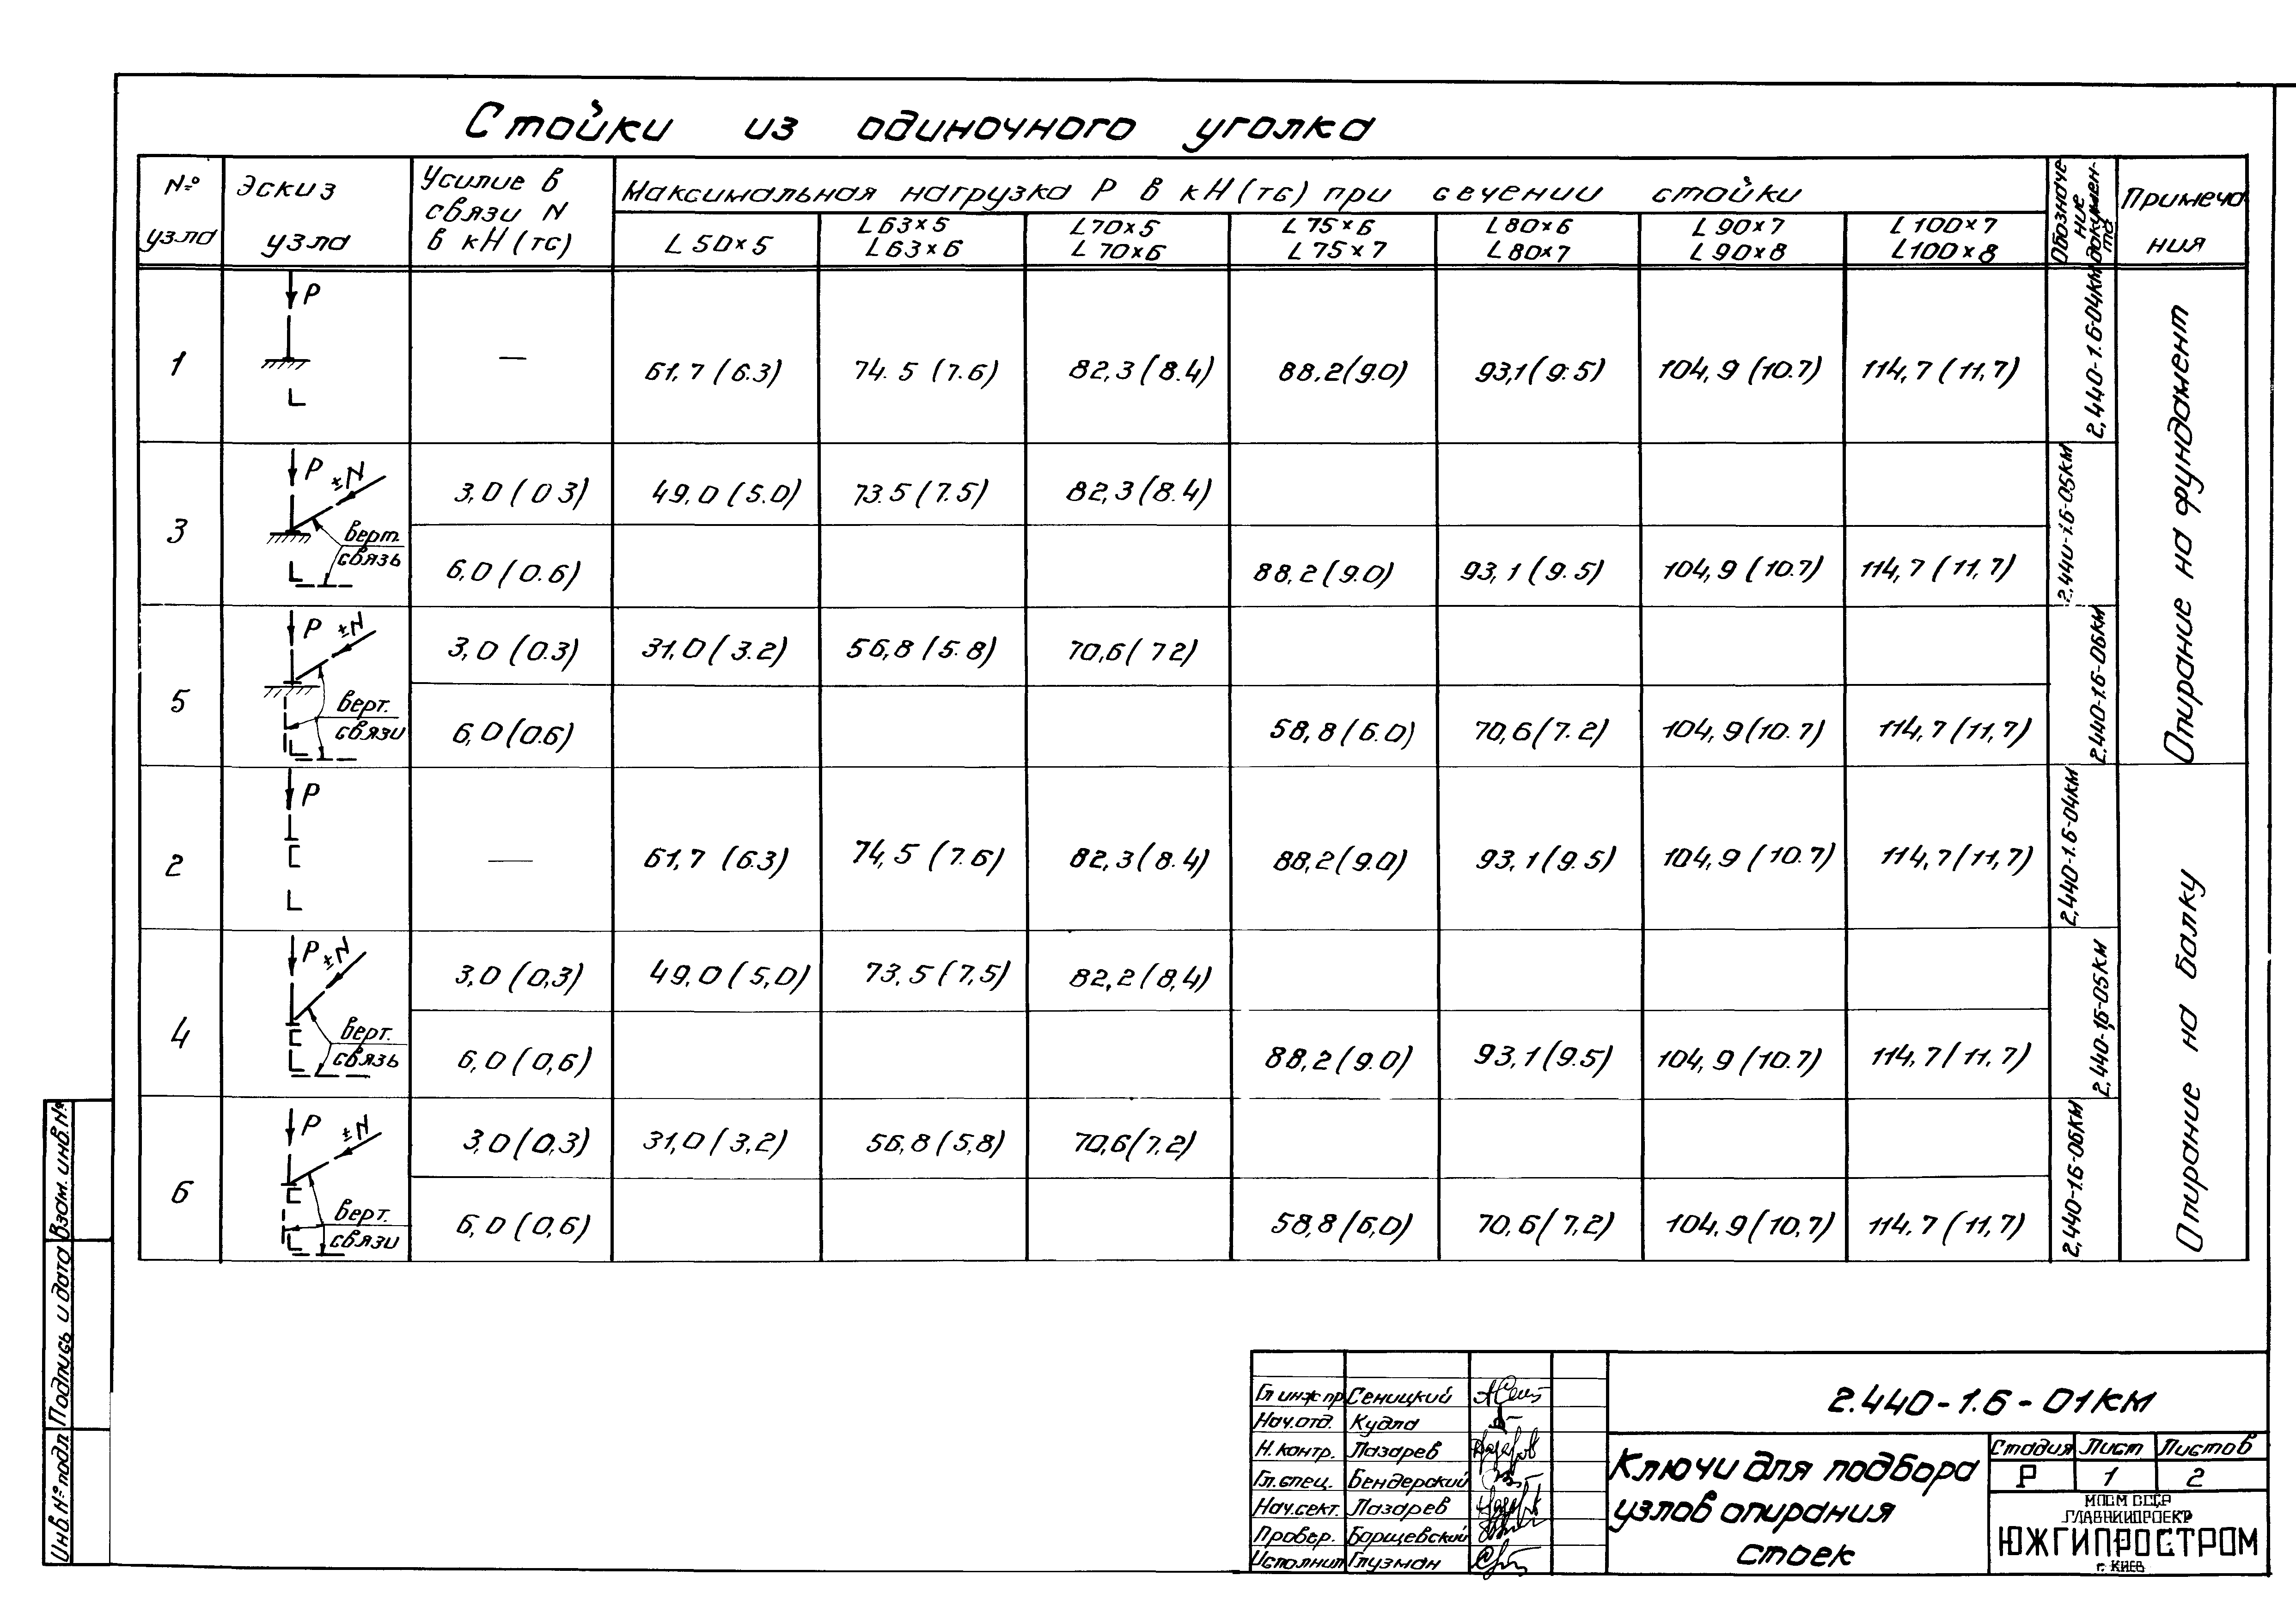 Стойки из одиночного уголка
№ узла
Эскиз узла
Усилие в связи N в кН (тс)
Максимальная нагрузка Р в кН (тс) при сечении стойки
L 50×5
L 63×5
L 63×6
L 70×5
L 70×6
L 75×6
L 75×7
L 80×6
L 80×7
L 90×7
L 90×8
L 100×7
L 100×8
Обозначение документа
Примечания
1
P
—
61,7 (6.3)
74.5 (7.6)
82,3 (8.4)
88,2 (9.0)
93,1 (9.5)
104,9 (10.7)
114,7 (11,7)
2,440-1.6-04КМ
Опирание на фундамент
3
P
±N
верт.
связь
3,0 (0 3)
49,0 (5.0)
73.5 (7.5)
82,3 (8.4)
6,0 (0.6)
88,2 (9.0)
93,1 (9.5)
104,9 (10.7)
114,7 (11,7)
2,440-1.6-05КМ
5
P
±N
верт.
связи
3,0 (0.3)
31,0 (3.2)
56,8 (5.8)
70,6 (7 2)
6,0 (0.6)
58,8 (6.0)
70,6 (7.2)
104,9 (10.7)
114,7 (11,7)
2.440-1.6-06КМ
2
P
—
61,7 (6.3)
74,5 (7.6)
82,3 (8.4)
88,2 (9.0)
93,1 (9.5)
104,9 (10.7)
114,7 (11,7)
2,440-1.6-04КМ
Опирание на балку
4
P
±N
верт.
связь
3,0 (0,3)
49,0 (5,0)
73,5 (7,5)
82,2 (8,4)
6,0 (0,6)
88,2 (9.0)
93,1 (9.5)
104,9 (10.7)
114,7 (11,7)
2,440-1.6-05КМ
6
P
±N
верт.
связи
3,0 (0,3)
31,0 (3,2)
56,8 (5,8)
70,6 (7,2)
6,0 (0,6)
58,8 (6,0)
70,6 (7,2)
104,9 (10,7)
114,7 (11,7)
2,440-1.6-06КМ
Взам. инв. №
Подпись и дата
Инв. № подл.
Гл инж пр Сеницкий
Нач.отд. Кудла
Н.контр. Лазарев
Гл.спец. Бендерский
Нач.сект. Лазарев
Провер. Борщевский
Исполнил Глузман
2.440-1.6-01КМ
Ключи для подбора
узлов опирания
стоек
Стадия Лист Листов
Р 1 2
МПСМ СССР
ГЛАВНИИПРОЕКТ
ЮЖГИПРОСТРОМ
г. КИЕВ